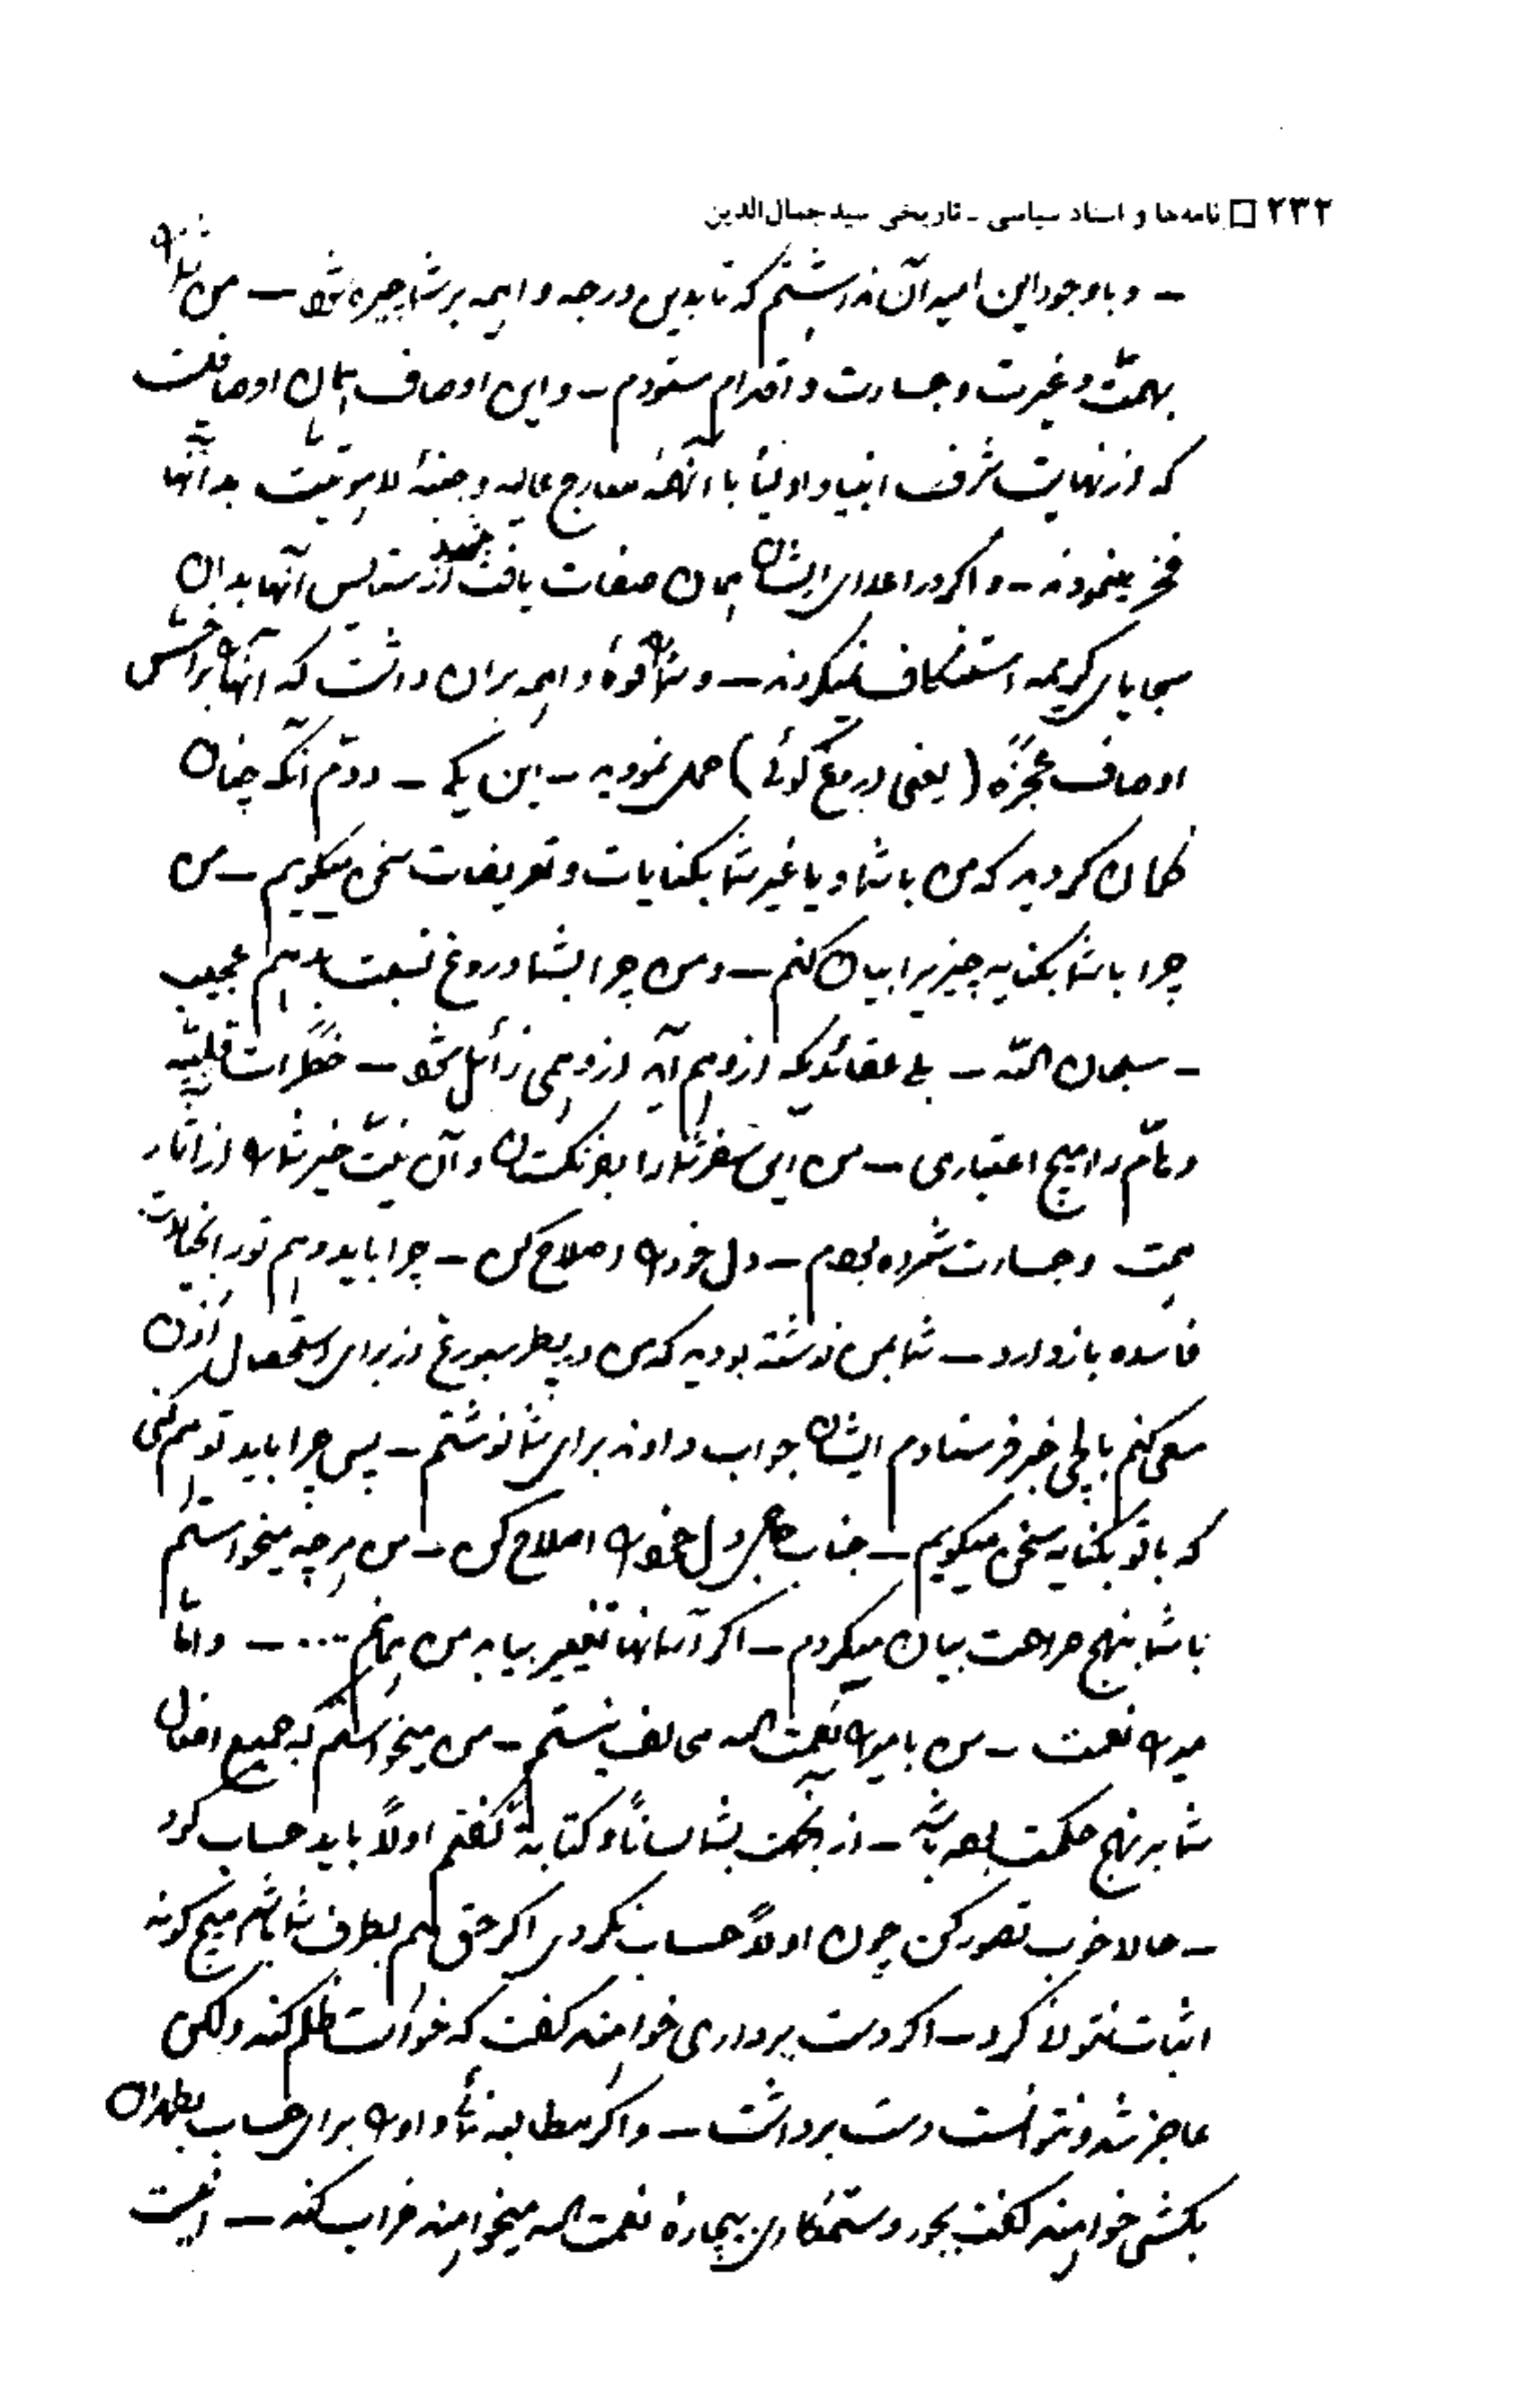 ۲۳۲ □ نامه‌ها و اسناد سیاسی ـ تاریخی سید جمال‌الدین
ـ و با وجود این امید آن نداشتم که تا بدین درجه واهمه بر شما چیره شود ـ من شما را
بهمت و غیرت و جسارت و اقدام ستودم ـ و این اوصاف همان اوصافست
که از نهایت شرف انبیا و اولیا با آنهمه معارج عالیه و جنبهٔ لاهوتیت بدانها
فخر مینمودند ـ و اگر در اعدای ایشان همان صفات یافت میشد از ستایش آنها بدان
سجایای کریمه استنکاف نمیکردند ـ و شما را قوهٔ واهمه بران داشت که آنها را بر اخس
اوصاف عجزه (یعنی دروغ گوئی) حمل نمودید ـ این یکی ـ دوم آنکه چنان
گمان کردید که من با شما و یا غیر شما بکنایات و تعریضات سخن میگویم ـ من
چرا با شما بکنایه چیزیرا بیان کنم ـ و من چرا بشما دروغ نسبت بدهم عجیب
ـ سبحان الله ـ بلی عقائدیکه از وهم آید از وهمی زائل شود ـ خطرات قلبیه
و نام را هیچ اعتباری ـ من این سفر شما را بفرنگستان و آن نیت خیر شما را از آثار
همت و جسارت شمرده بودم ـ دل خود را اصلاح کن ـ چرا باید وهم تو را بخیالات
فاسده بازدارد ـ شما بمن نوشته بودید که من در پطرسبورغ از برای استحصال اذن
سعی کنم بایلچی خبر فرستادم ایشان جواب دادند برای شما نوشتم ـ پس چرا باید توهم کنی
که با تو بکنایه سخن میگویم ـ جناب حاجی دل خود را اصلاح کن ـ من هر چه میخواستم
با شما بنهج صراحت بیان میکردم ـ اگر آسمانها تغییر بیابد من همانم ... ـ و اما
میرزا نعمت ـ من با میرزا نعمت الله مخالف نیستم ـ من میخواستم که جمیع افعال
شما بر نهج حکمت بوده باشد ـ از اینجهت بشما لساناً و کتابةً گفتم اولاً باید حساب کرد
ـ حالا خوب تصور کن چون اولاً حساب نکردی اگر حق هم بطرف شما باشد هیچ گونه
اثبات نتوان کرد ـ اگر دست برداری خواهند گفت که خواست ظلم کند ولکن
عاجز شد و نتوانست دست برداشت ـ و اگر مطالبه نمائی و او را برای حساب بطهران
بکشی خواهند گفت بجور و ستمکاری بیچاره نعمت الله میخواهند خراب کند ـ اینست